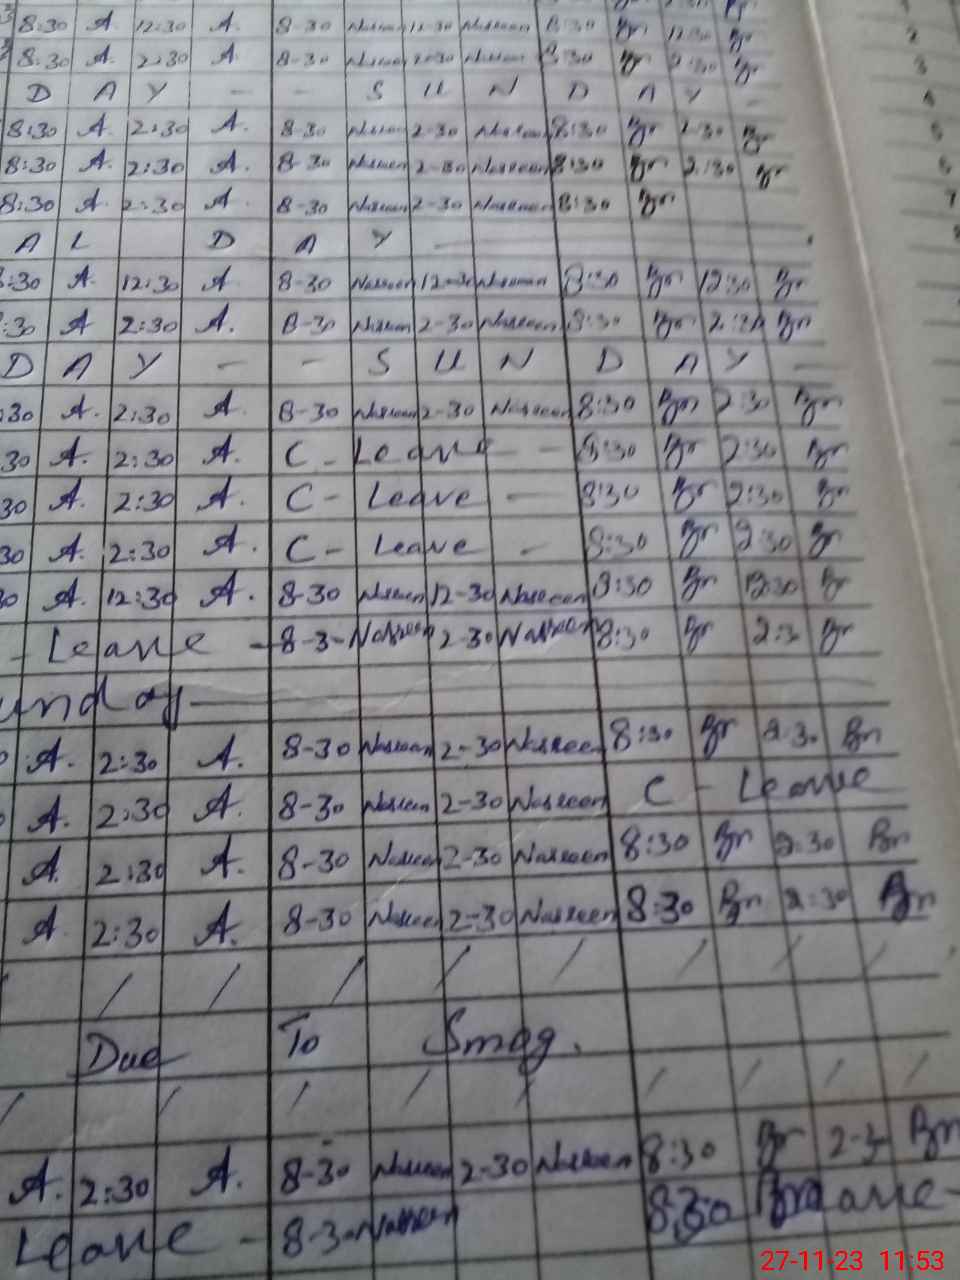 8:30 A. 12:30 A. 8-30 Naseen 12-30 Naseen 8:30 Br 12:30 Br
8:30 A. 2:30 A. 8-30 Naseen 2-30 Naseen 8:30 Br 2:30 Br
D A Y - - S U N D A Y -
8:30 A. 2:30 A. 8-30 Naseen 2-30 Naseen 8:30 Br 2-30 Br
8:30 A. 2:30 A. 8-30 Naseen 2-30 Naseen 8:30 Br 2:30 Br
8:30 A. 2:30 A. 8-30 Naseen 2-30 Naseen 8:30 Br
A L D A Y
:30 A. 12:30 A. 8-30 Naseen 12-30 Naseen 8:30 Br 12:30 Br
:30 A 2:30 A. 8-30 Naseen 2-30 Naseen 8:30 Br 2:30 Br
D A Y - - S U N D A Y -
:30 A. 2:30 A. 8-30 Naseen 2-30 Naseen 8:30 Br 2:30 Br
30 A. 2:30 A. C - Leave - - 8:30 Br 2:30 Br
30 A. 2:30 A. C - Leave - 8:30 Br 2:30 Br
30 A. 2:30 A. C - Leave - 8:30 Br 2:30 Br
A. 12:30 A. 8-30 Naseen 12-30 Naseen 8:30 Br 12:30 Br
- Leave - 8-3- Naseen 2-30 Naseen 8:30 Br 2:3 Br
unday
A. 2:30 A. 8-30 Naseen 2-30 Naseen 8:30 Br 2:30 Br
A. 2:30 A. 8-30 Naseen 2-30 Naseen C - Leave
A. 2:30 A. 8-30 Naseen 2-30 Naseen 8:30 Br 2:30 Br
A. 2:30 A. 8-30 Naseen 2-30 Naseen 8:30 Br 2:30 Br
/ / / / / / / / /
Due To Smog.
/ / / / / / / / /
A. 2:30 A. 8-30 Naseen 2-30 Naseen 8:30 Br 2-3 Br
Leave - 8-30 Naseen 8:30
27-11-23 11:53